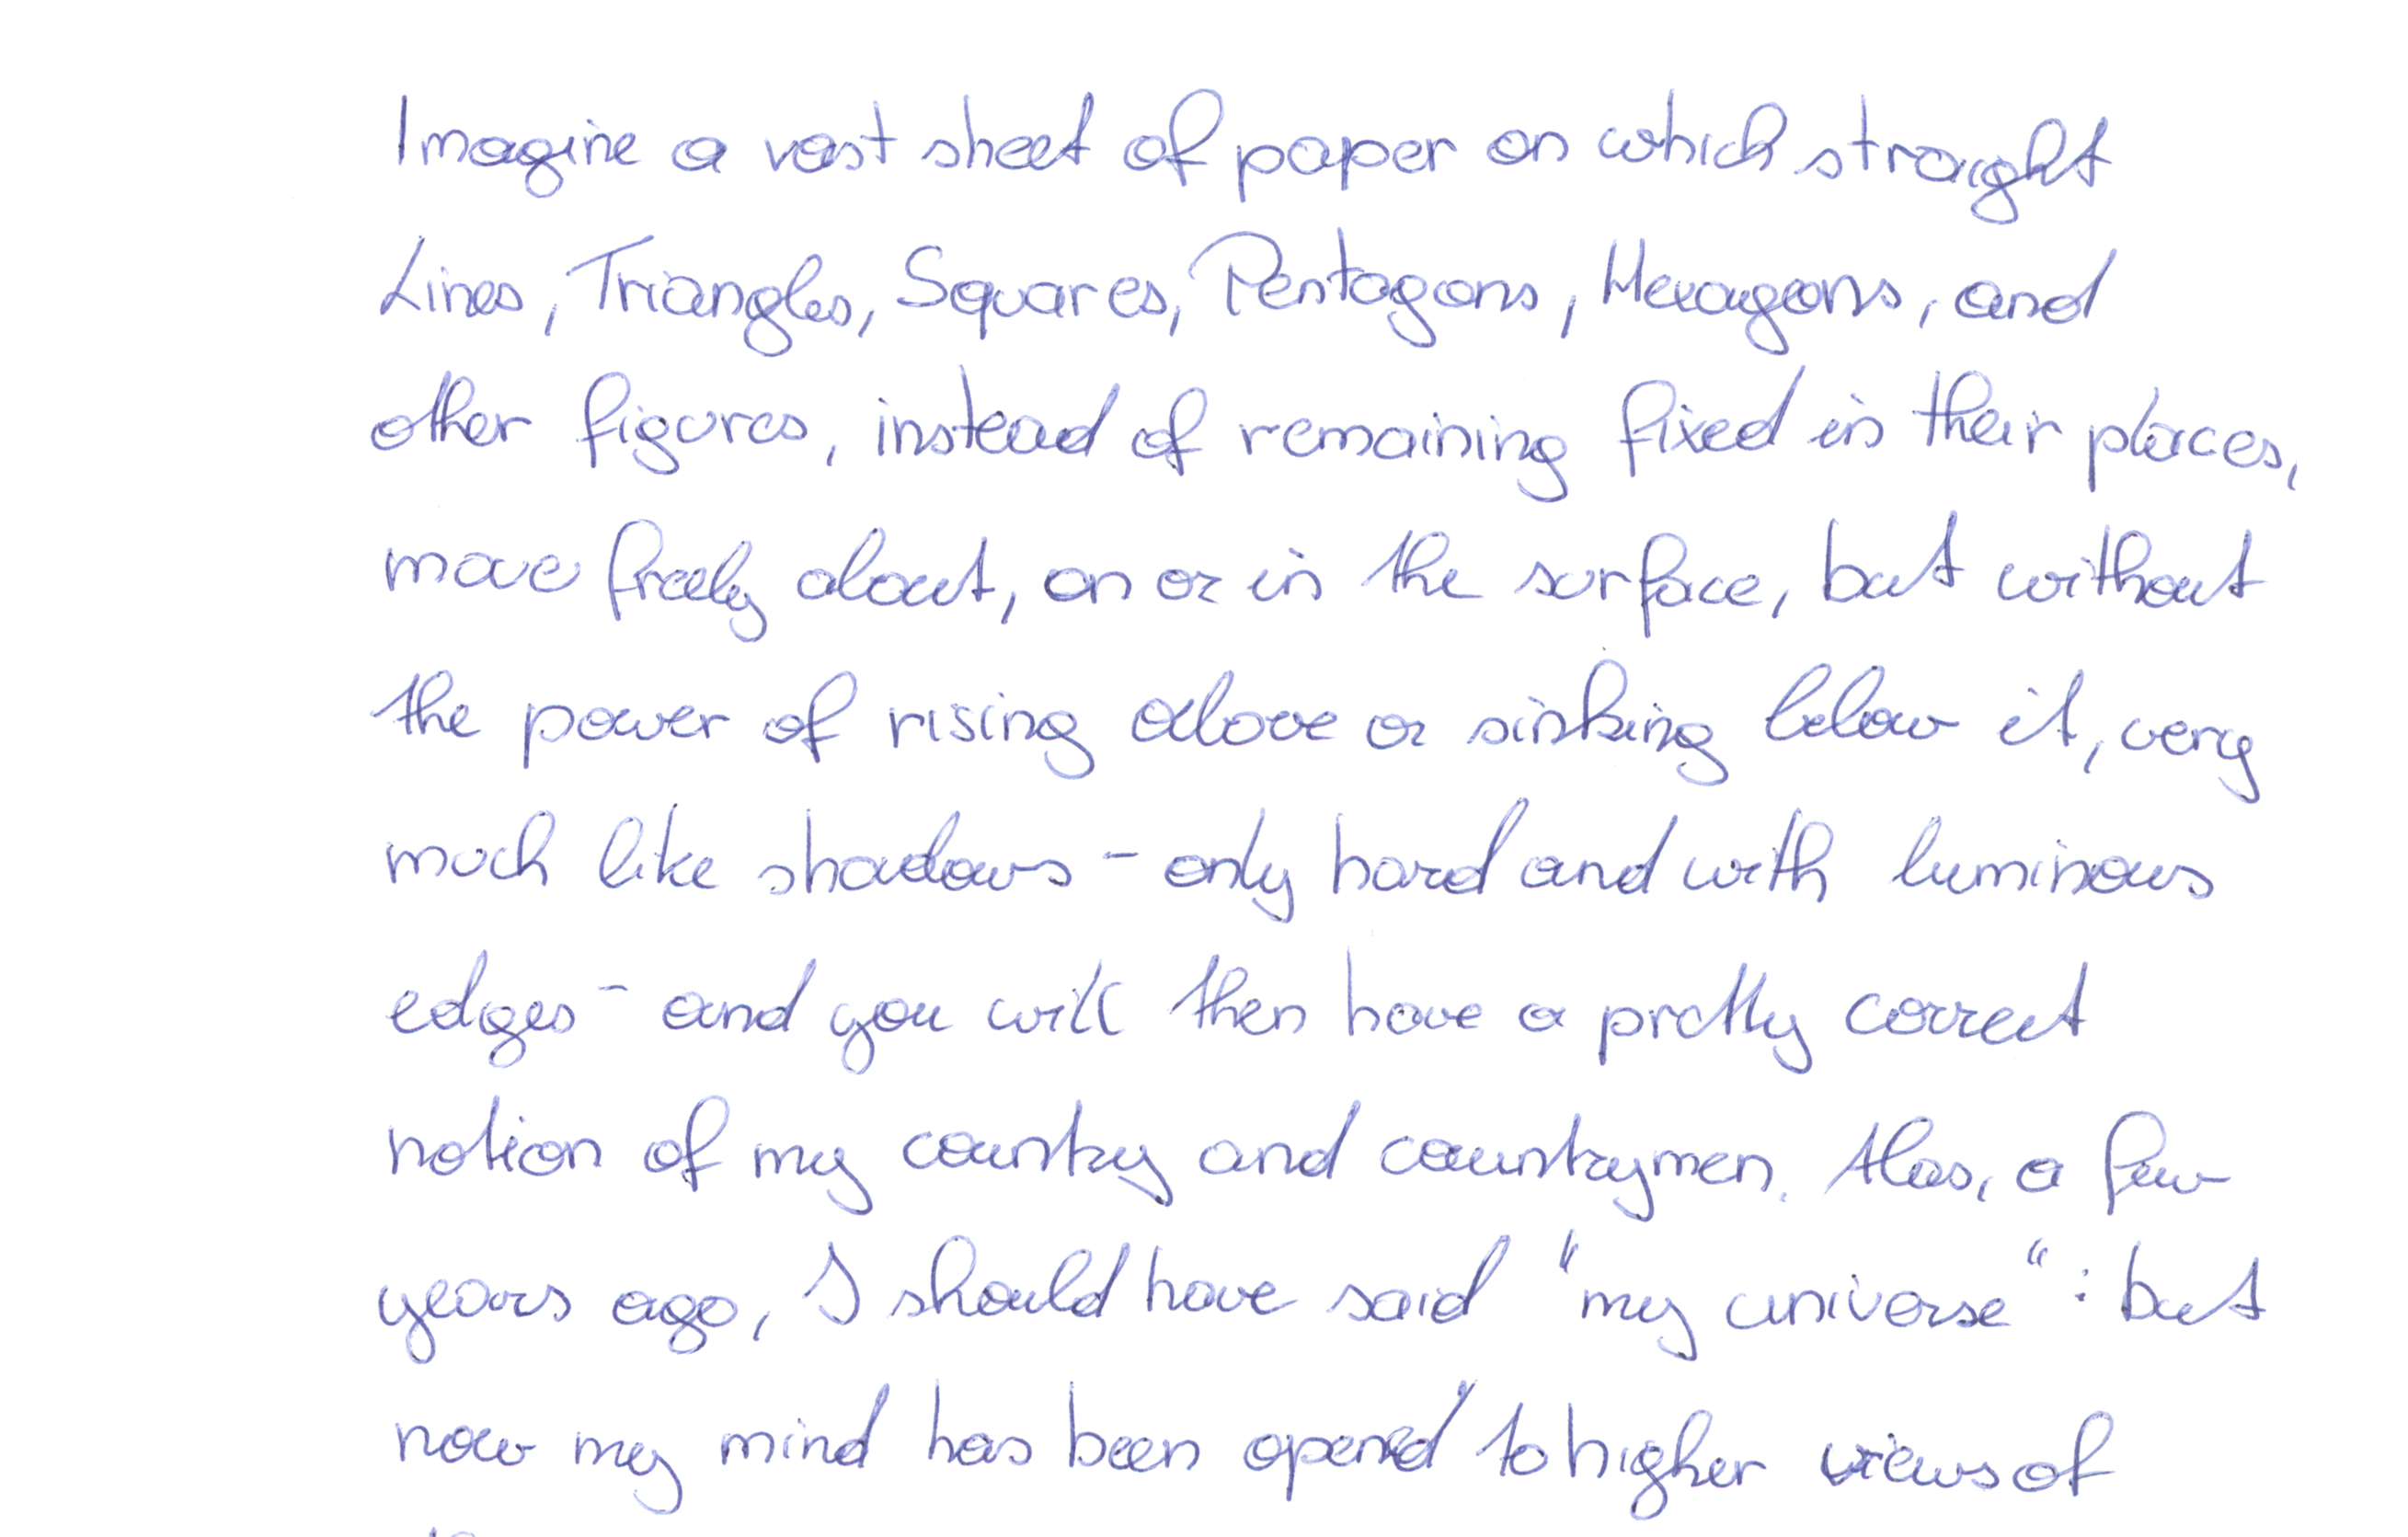 Imagine a vast sheet of paper on which straight
Lines, Triangles, Squares, Pentagons, Hexagons, and
other figures, instead of remaining fixed in their places,
move freely about, on or in the surface, but without
the power of rising above or sinking below it, very
much like shadows - only hard and with luminous
edges - and you will then have a pretty correct
notion of my country and countrymen. Alas, a few
years ago, I should have said "my universe“: but
now my mind has been opened to higher views of